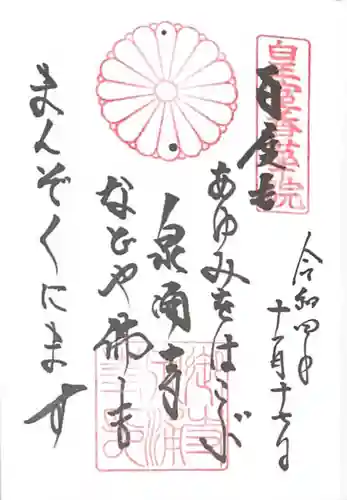 皇室香華院
令和四年十一月十七日
百度も
あゆみをはこぶ
泉涌寺
などや佛も
まんぞくにます